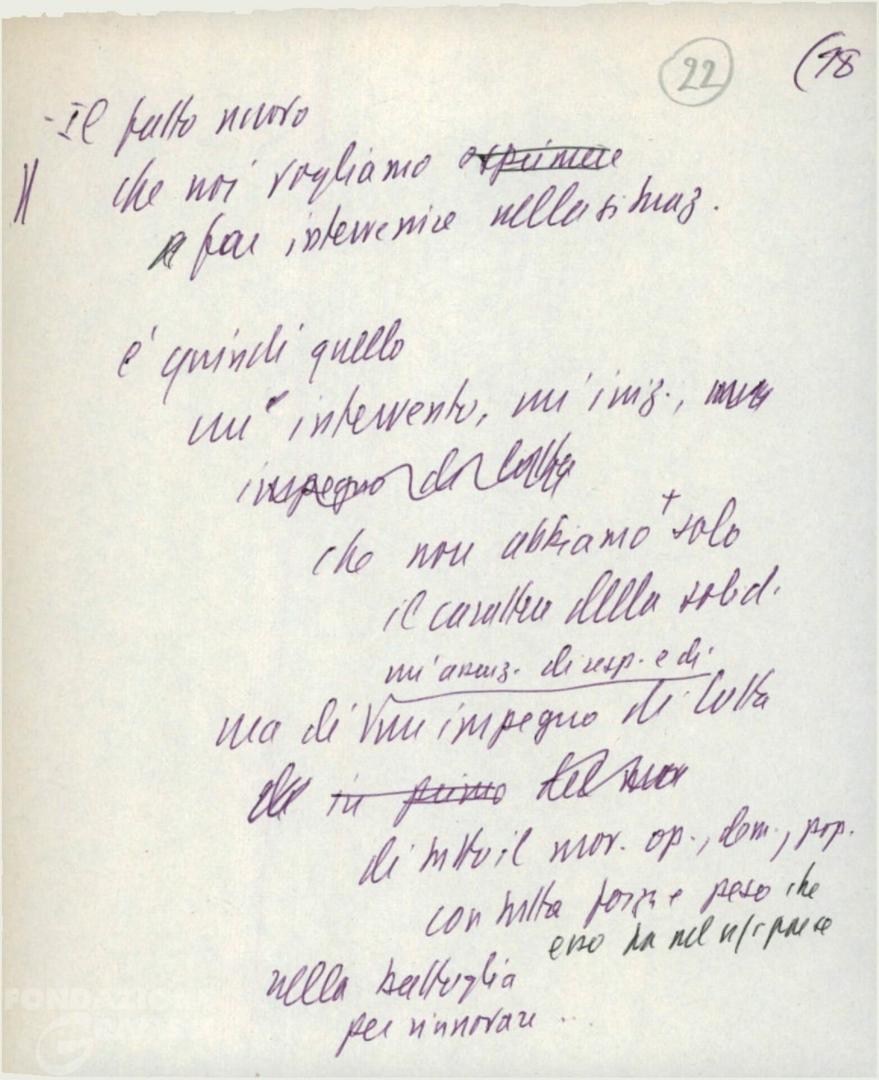 22 (18
- Il fatto nuovo
che noi vogliamo esprimere
far intervenire nella situaz.
e' quindi quello
un' intervento, un' iniz., una
impegno di lotta
che non abbiamo + solo
il carattere della solid.
un' assunz. di resp. e di
ma di un impegno di lotta
in primo
di tutto il mov. op., dem., pop.
con tutta forza e peso che
esso ha nel n/s paese
nella battaglia
per rinnovare ...
FONDAZIO